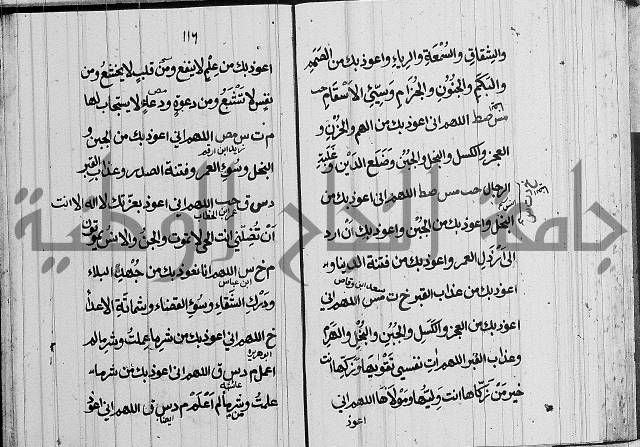 والشقاق والسمعة والرياء واعوذ بك من الصمم
والبكم والجنون والجذام وسيئ الاسقام حب
مس صط اللهم اني اعوذ بك من الهم والحزن و
العجز والكسل والبخل والجبن وضلع الدين وغلبة
الرجال حب مس صط اللهم اني اعوذ بك من
البخل واعوذ بك من الجبن واعوذ بك ان ارد
الى ارذل العمر واعوذ بك من فتنة الدنيا و
سعد ابن وقاص
اعوذ بك من عذاب القبر خ ت مس اللهم اني
اعوذ بك من العجز والكسل والجبن والبخل والهرم
وعذاب القبر اللهم ات نفسي تقويها وزكها انت
خير من زكاها انت وليها ومولاها اللهم اني
اعوذ
١١٦
اعوذ بك من علم لا ينفع ومن قلب لا يخشع ومن
نفس لا تشبع ومن دعوة لا يستجاب لها
م ت س مص اللهم اني اعوذ بك من الجبن و
زيد ابن ارقم
البخل وسوء العمر وفتنة الصدر وعذاب القبر
د س ق حب اللهم اني اعوذ بعزتك لا اله الا انت
عمر ابن الخطاب
ان تضلني انت الحي لا يموت والجن والانس يموتون
م خ س اللهم انا نعوذ بك من جهد البلاء
ابن عباس
ودرك الشقاء وسوء القضاء وشماتة الاعداء
خ اللهم اني اعوذ بك من شر ما عملت وشر ما لم
ابو هريرة
اعمل م د س ق اللهم اني اعوذ بك من شر ما
عائشة
علمت وشر ما لم اعلم م د س ق اللهم اني اعوذ
ايضا
جامعة النجاح الوطنية